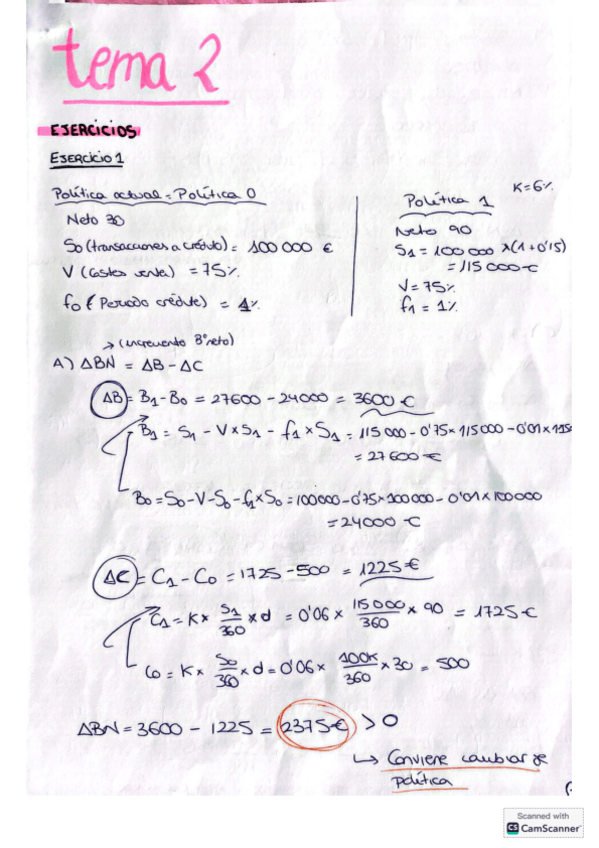 tema 2
EJERCICIOS
EJERCICIO 1
Política actual = Política 0
Neto 30
S0 (transacciones a crédito) = 100 000 €
V (costes venta) = 75%
f0 ( Periodo crédito) = 1%
K=6%
Política 1
Neto 90
S1 = 100 000 x(1+0'15)
= 115 000 €
V= 75%
f1 = 1%
→ (incremento Bº neto)
A) ΔBN = ΔB - ΔC
ΔB = B1 - B0 = 27600 - 24000 = 3600 €
B1 = S1 - V x S1 - f1 x S1 = 115 000 - 0'75 x 115 000 - 0'01 x 115
= 27 600 €
B0 = S0 - V - S0 - f1 x S0 = 100000 - 0'75 x 100000 - 0'01 x 100000
= 24000 €
ΔC = C1 - C0 = 1725 - 500 = 1225 €
C1 = K x S1/360 x d = 0'06 x 115 000/360 x 90 = 1725 €
C0 = K x S0/360 x d = 0'06 x 100K/360 x 30 = 500
ΔBN = 3600 - 1225 = 2375 € > 0
↳ Conviene cambiar de
política
Scanned with
CS CamScanner